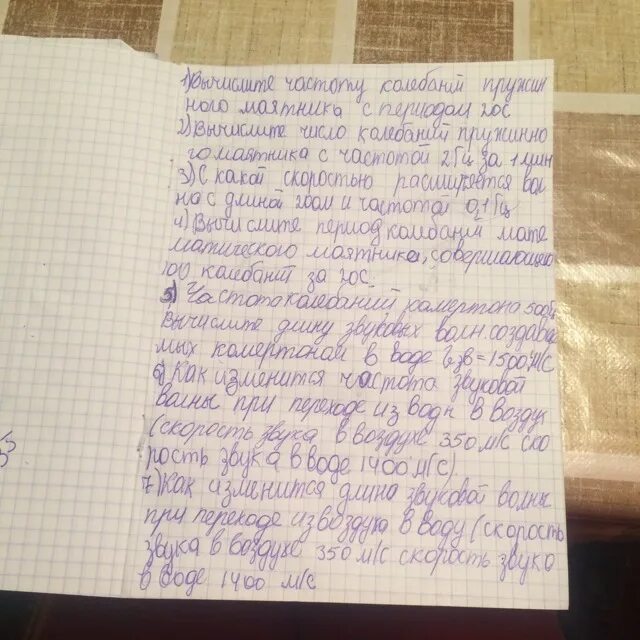 1) Вычислите частоту колебаний пружин
ного маятника с периодом 20с
2) Вычислите число колебаний пружинно
го маятника с частотой 2Гц за 1 мин
3) С какой скоростью расширяется вол
на с длиной 200м и частотой 0,1Гц
4) Вычислите период колебаний мате
матического маятника, совершающего
100 колебаний за 20с.
5) Частота колебаний рамертона 500Гц
Вычислите длину звуковых волн. создава
емых камертоном в воде зв = 1500м/с
6) Как изменится частота звуковой
волны при переходе из воды в воздух
(скорость звука в воздухе 350 м/с ско
рость звука в воде 1400 м/с)
7) Как изменится длина звуковой волны
при переходе из воздуха в воду (скорость
звука в воздухе 350 м/с скорость звука
в воде 1400 м/с